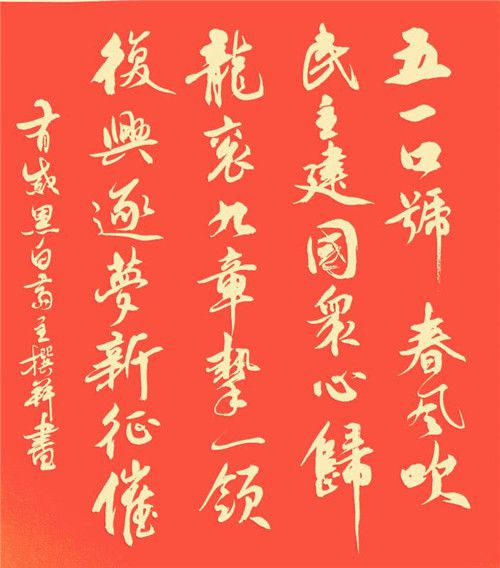 五一口號春风吹
民主建國衆心歸
龍袞九章摯一領
復興逐夢新征催
有感黑白斋主撰并書